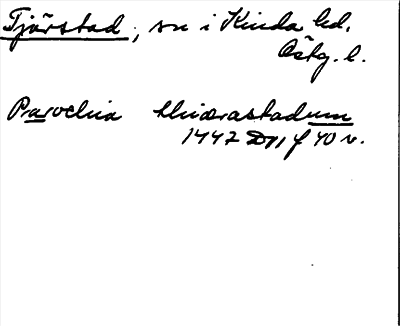 Tjärstad, sn i Kinda hd.
Östg. l.
Parochia thiærastadum
1447 D11 f 40 v.